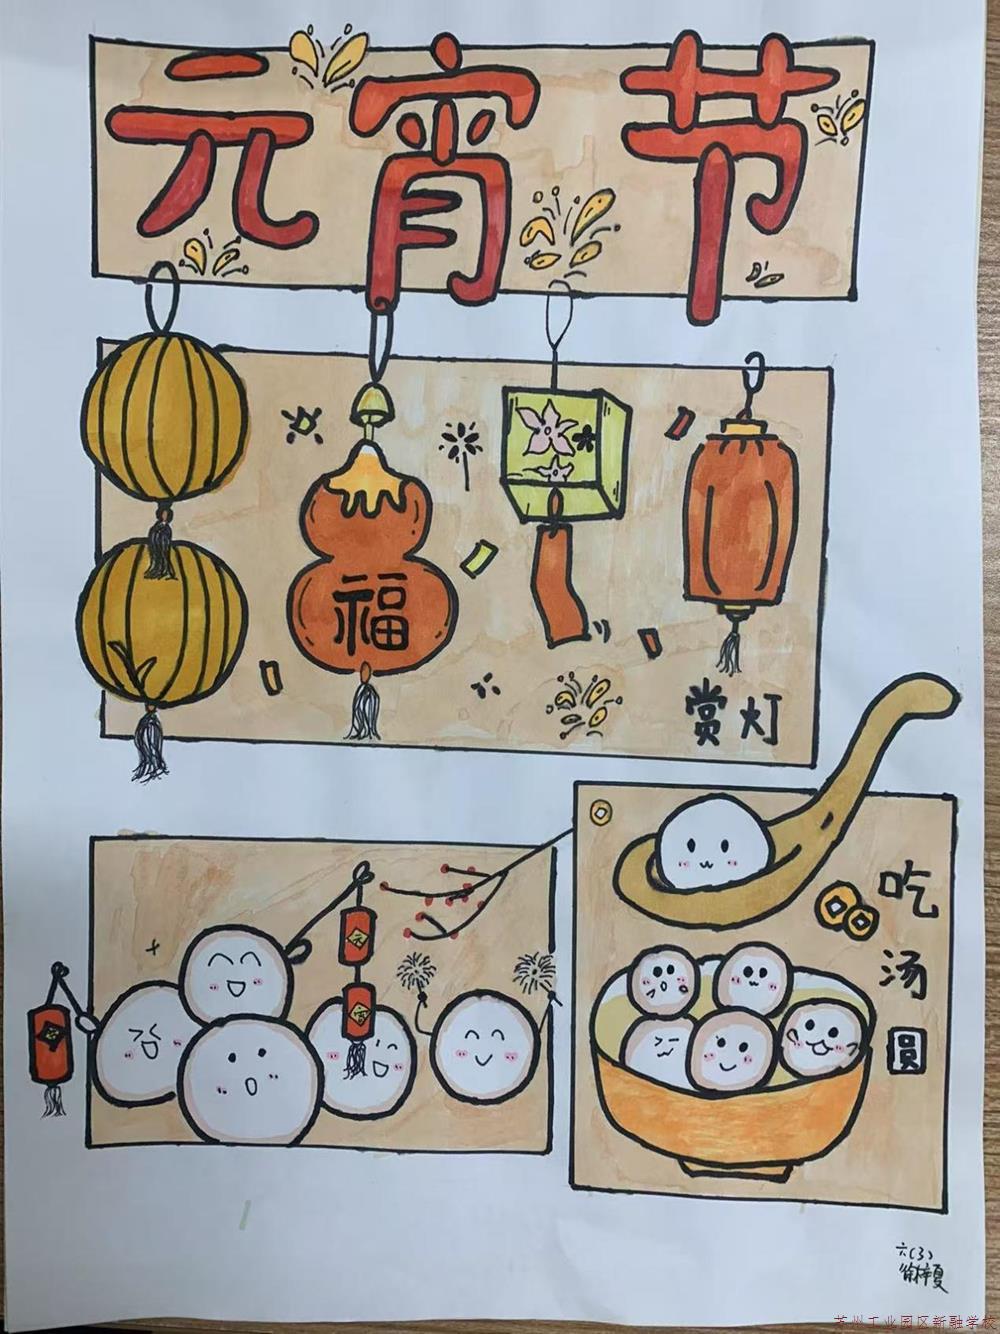 元宵节
福
赏灯
元
宵
吃汤圆
六(3)
徐梓夏
苏州工业园区新融学校